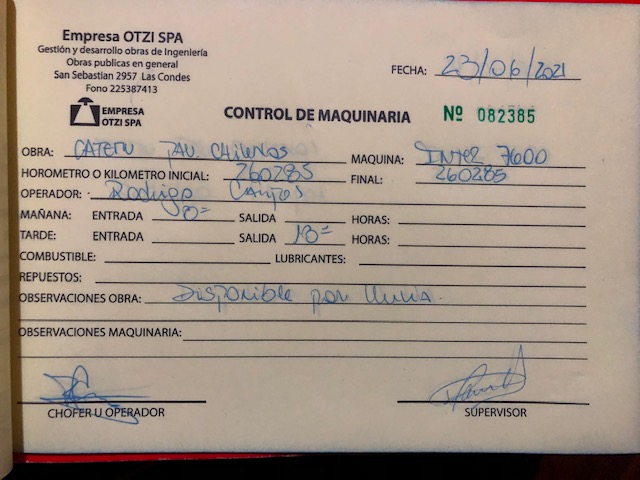 Empresa OTZI SPA
Gestión y desarrollo obras de Ingeniería
Obras publicas en general
San Sebastian 2957 Las Condes
Fono 225387413
EMPRESA
OTZI SPA
FECHA: 23/06/2021
CONTROL DE MAQUINARIA Nº 082385
OBRA: CATERU TAV. Chilenas MAQUINA: INTER 7600
HOROMETRO O KILOMETRO INICIAL: 260285 FINAL: 260285
OPERADOR: Rodrigo Campos
MAÑANA: ENTRADA 8º= SALIDA HORAS:
TARDE: ENTRADA SALIDA 18= HORAS:
COMBUSTIBLE: LUBRICANTES:
REPUESTOS:
OBSERVACIONES OBRA: Disponible por lluvia.
OBSERVACIONES MAQUINARIA:
CHOFER U OPERADOR SUPERVISOR